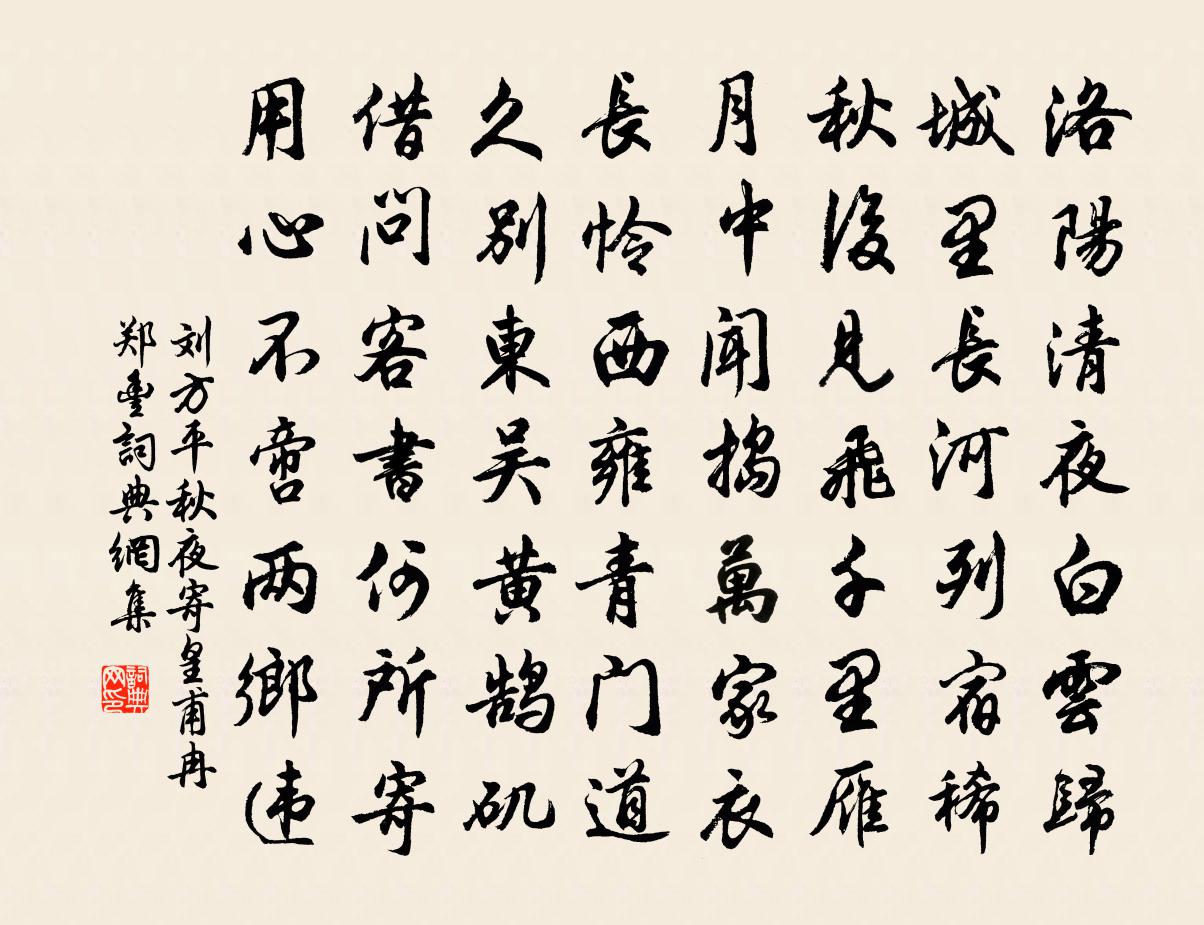 洛陽清夜白雲歸
城里長河列宿稀
秋後見飛千里雁
月中聞搗萬家衣
長怜西雍青门道
久别東吴黄鹄矶
借问客書何所寄
用心不啻两鄉违
刘方平秋夜寄皇甫冉
郑重詞典網集
詞典
网印